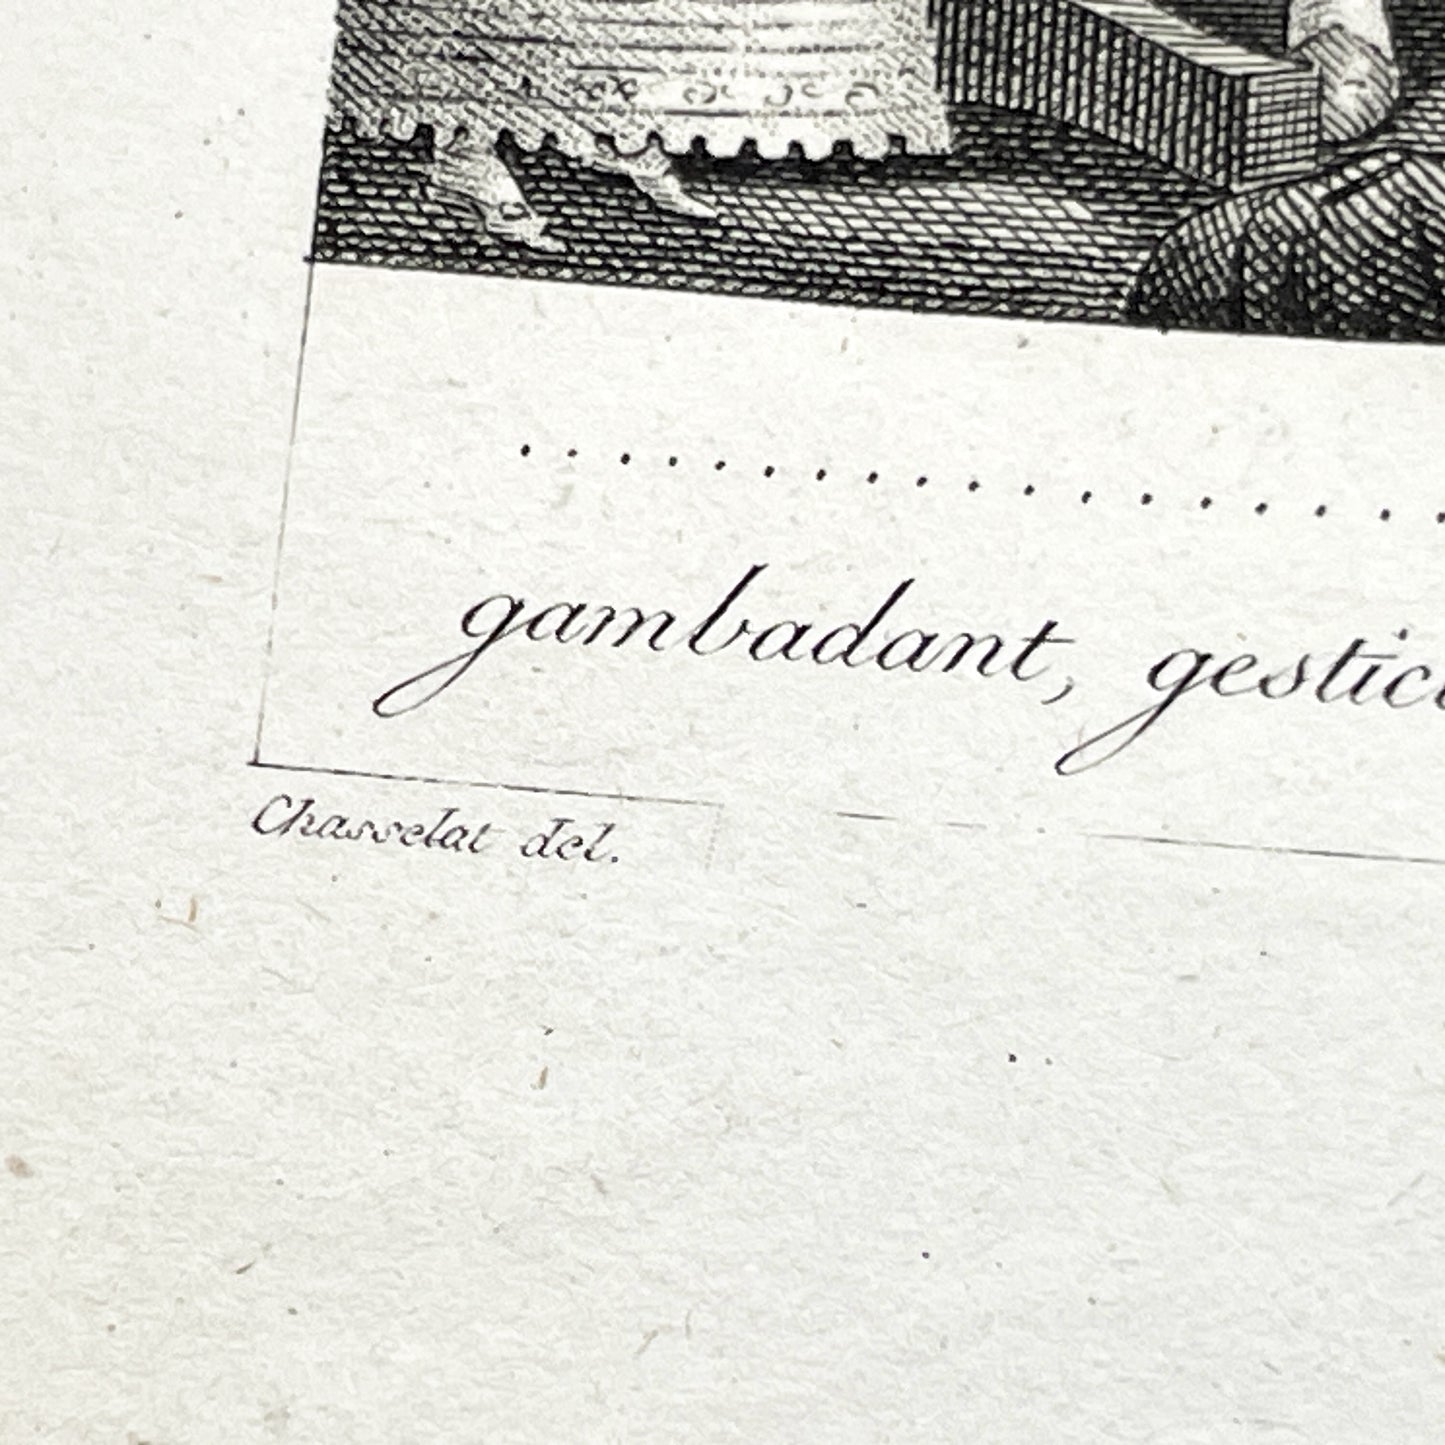 ..................
gambadant, gestic
Chasselat del.